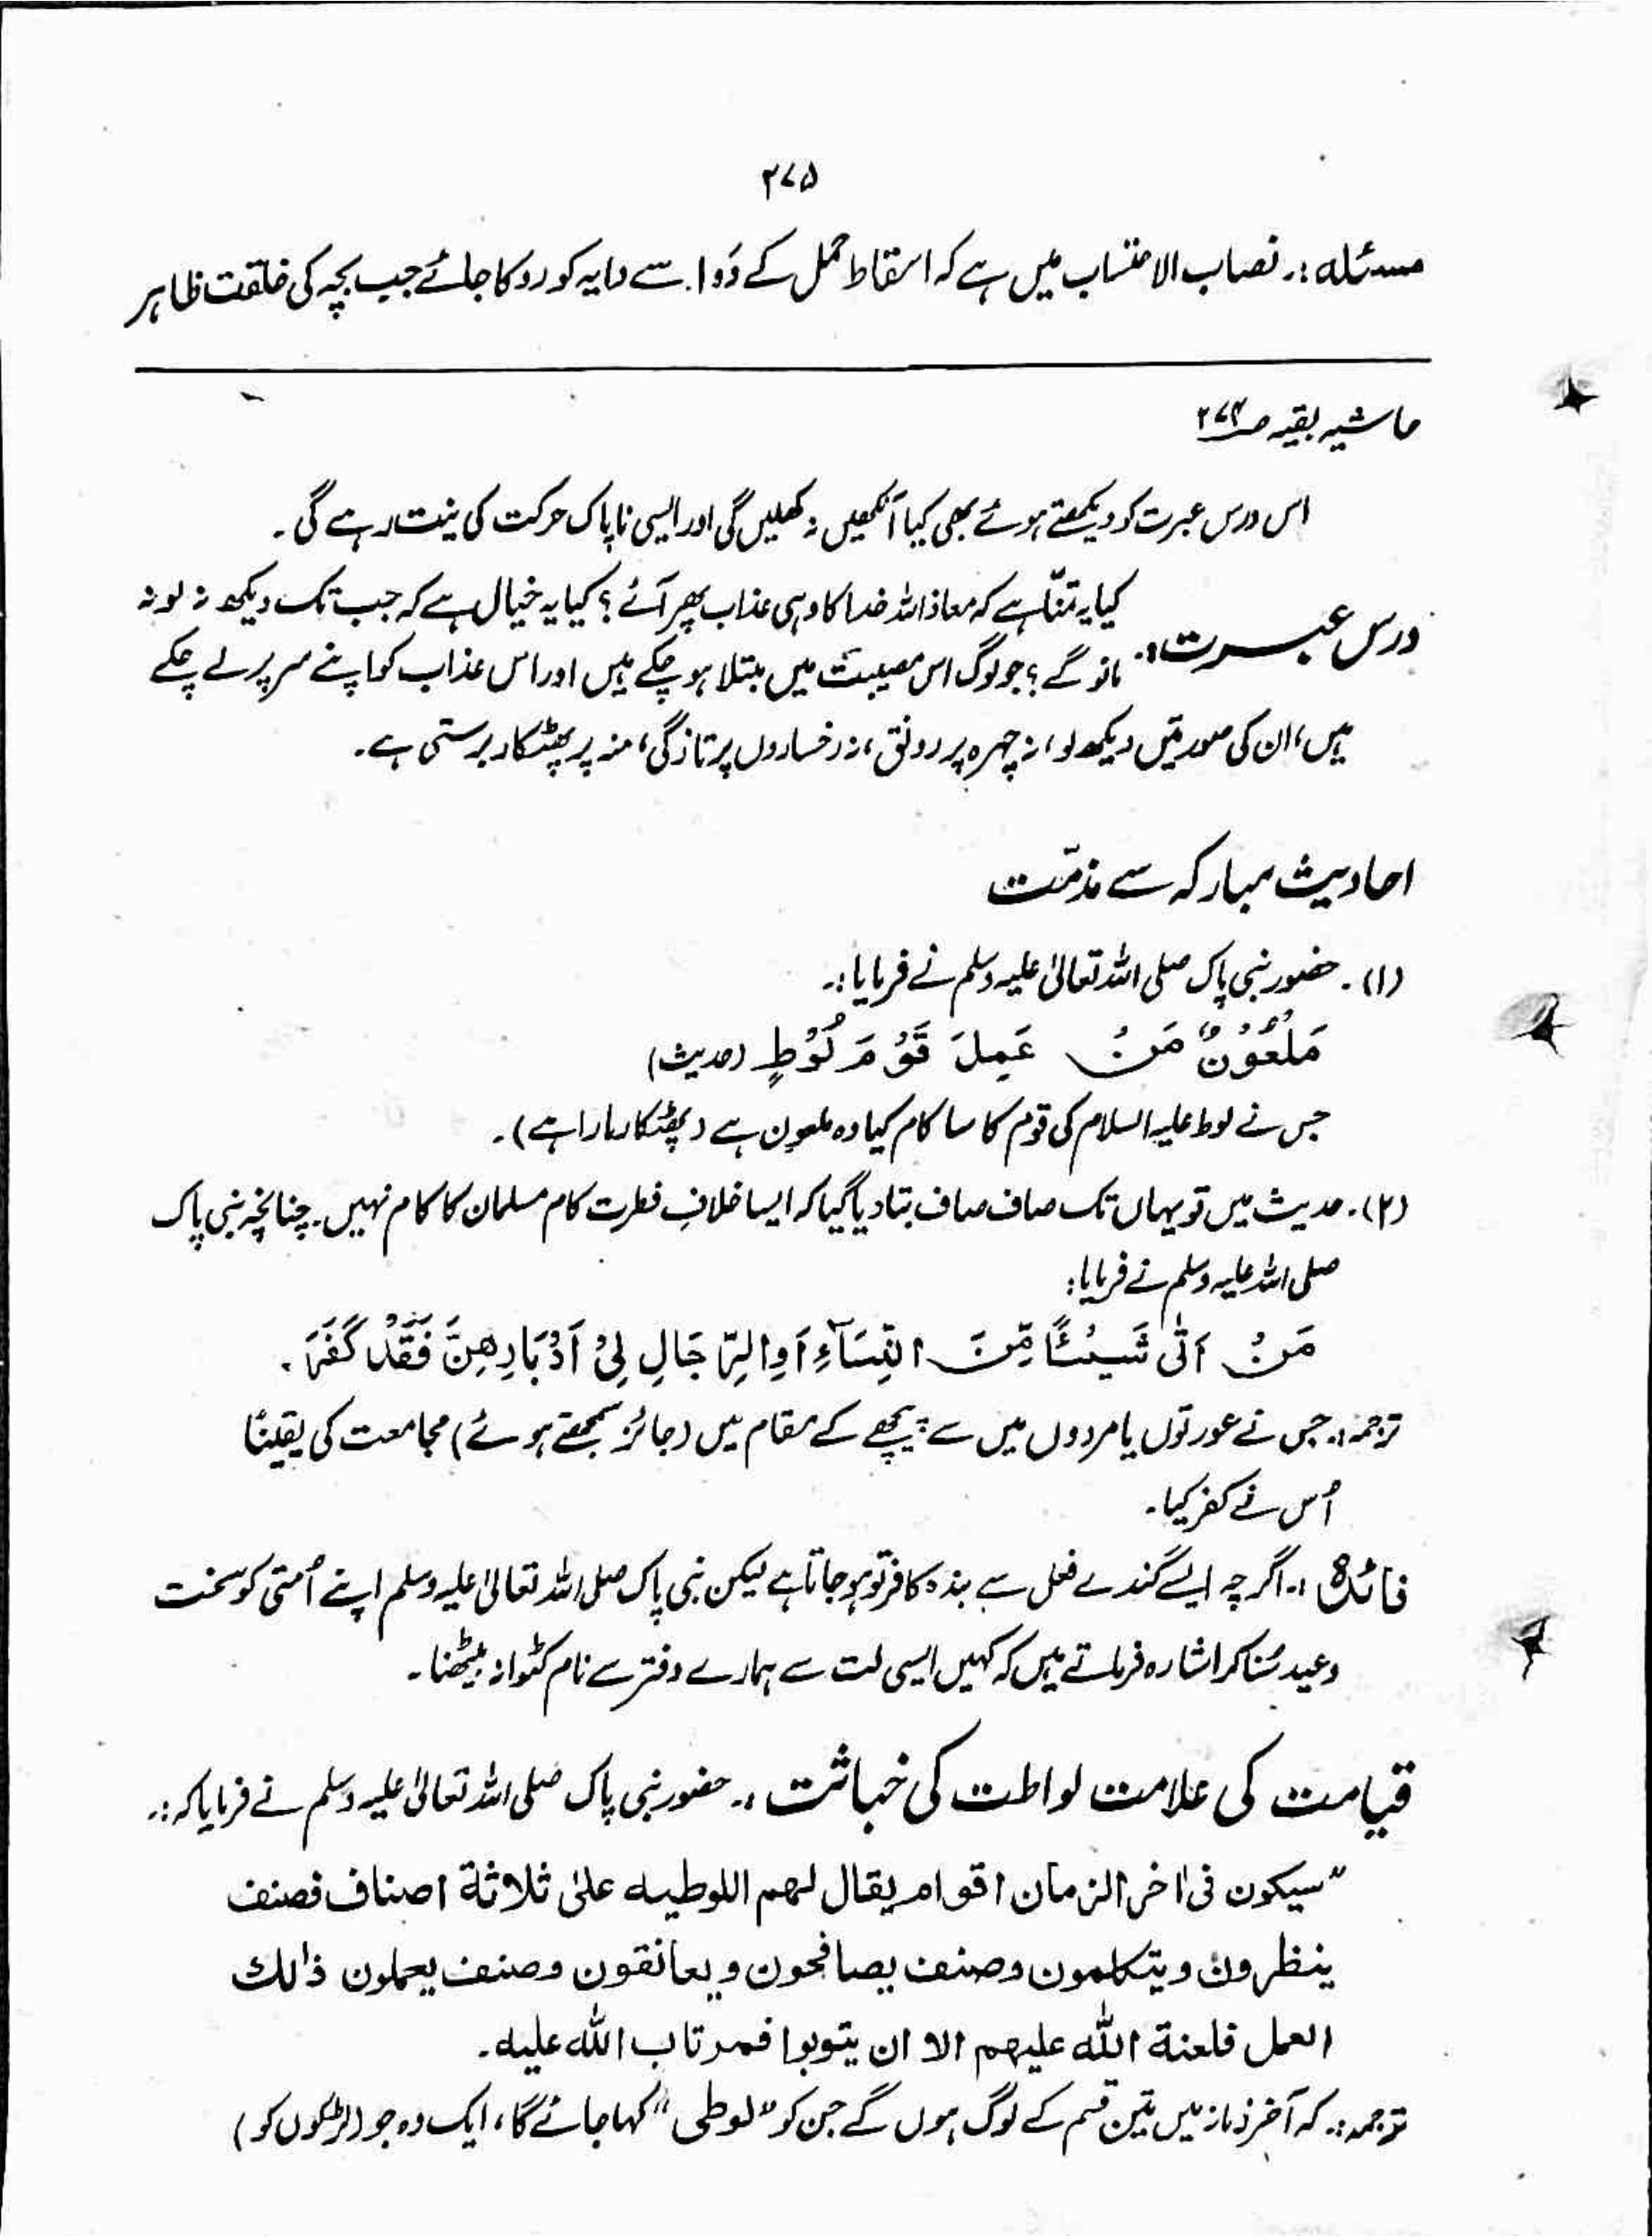 ۲۷۵
مسئلہ:۔ نصاب الاحتساب میں ہے کہ اسقاط حمل کے دَوا۔ سے دایہ کو روکا جائے جب بچہ کی خلقت ظاہر
حاشیہ بقیہ صـ۲۷۴
اس درس عبرت کو دیکھتے ہوئے بھی کیا آنکھیں نہ کھلیں گی اور ایسی ناپاک حرکت کی نیت رہے گی۔
درس عبرت:۔ کیا یہ تمنّا ہے کہ معاذ اللہ خدا کا وہی عذاب پھر آئے؟ کیا یہ خیال ہے کہ جب تک دیکھ نہ لو نہ
مانو گے؟ جو لوگ اس مصیبت میں مبتلا ہو چکے ہیں اور اس عذاب کو اپنے سر پر لے چکے
ہیں، ان کی صورتیں دیکھ لو، نہ چہرہ پر رونق، نہ رخساروں پر تازگی، منہ پر پھٹکار برستی ہے۔
احادیث مبارکہ سے مذمّت
(۱)۔ حضور نبی پاک صلی اللہ تعالیٰ علیہ وسلم نے فرمایا:۔
مَلْعُوْنٌ مَنْ عَمِلَ قَوْمَ لُوْطٍ (حدیث)
جس نے لوط علیہ السلام کی قوم کا سا کام کیا وہ ملعون ہے (پھٹکار مارا ہے)۔
(۲)۔ حدیث میں تو یہاں تک صاف صاف بتا دیا گیا کہ ایسا خلافِ فطرت کام مسلمان کا کام نہیں۔ چنانچہ نبی پاک
صلی اللہ علیہ وسلم نے فرمایا:
مَنْ اَتٰى شَيْئًا مِّنَ النِّسَآءِ اَوِ الرِّجَالِ فِیْ اَدْبَارِهِنَّ فَقَدْ كَفَرَ۔
ترجمہ:۔ جس نے عورتوں یا مردوں میں سے پیچھے کے مقام میں (جائز سمجھتے ہوئے) مجامعت کی یقینًا
اُس نے کفر کیا۔
فائدہ:۔ اگرچہ ایسے گندے فعل سے بندہ کافر تو ہو جاتا ہے لیکن نبی پاک صلی اللہ تعالیٰ علیہ وسلم اپنے اُمتی کو سخت
وعید سُنا کر اشارہ فرماتے ہیں کہ کہیں ایسی لت سے ہمارے دفتر سے نام کٹوا نہ بیٹھنا۔
قیامت کی علامت لواطت کی خباثت:۔ حضور نبی پاک صلی اللہ تعالیٰ علیہ وسلم نے فرمایا کہ:۔
"سیکون فی اٰخر الزمان اقوام یقال لھم اللوطیہ علیٰ ثلاثة اصناف فصنف
ینظرون ویتکلمون وصنف یصافحون ویعانقون وصنف یعملون ذالک
العمل فلعنة اللّٰہ علیھم الا ان یتوبوا فمن تاب اللّٰہ علیہ۔
ترجمہ:۔ کہ آخر زمانہ میں تین قسم کے لوگ ہوں گے جن کو "لوطی" کہا جائے گا، ایک وہ جو (لڑکوں کو)